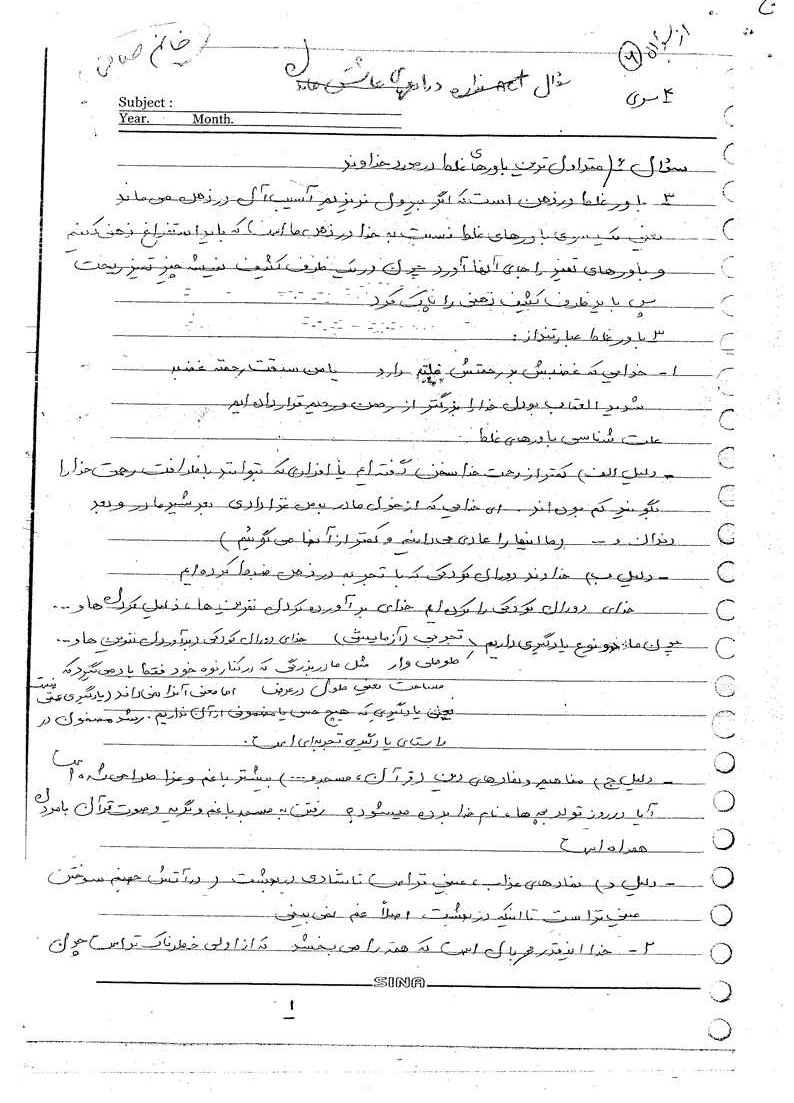 خانم صداقتی
سؤال ACT در
۴ سری
Subject :
Year. Month.
سؤال ۶) متداول ترین باورهای غلط در مورد خداوند
۳ باور غلط در ذهن است که اگر بیرون نریزیم آسیب آن در ذهن می ماند
یعنی یک سری باورهای غلط نسبت به خدا در ذهن ما است که باید استفراغ ذهنی کنیم
و باورهای تمیز را جای آنها آورد چون در یک ظرف کثیف نمیشه چیز تمیز ریخت
پس باید ظرف کثیف ذهنی را پاک کرد
۳ باور غلط عبارتند از :
۱- خدایی که غضبش بر رحمتش غلبه دارد یا من سبقت رحمته غضبه
شدید العقاب بودن خدا را بزرگتر از رحمن و رحیم قرار داده ایم
علت شناسی باورهای غلط
- دلیل الف) کمتر از رحمت خدا سخن گفته ایم یا افرادی که بتوانند با ظرافت رحمت خدا را
بگویند کم بودن اند. ای خدایی که از خون مادر به من غذا دادی بعد شیر مادر و بعد
دندان و ... (ما اینها را عادی می دانیم و کمتر از آنها می گوئیم)
- دلیل ب) خداوند دوران کودکی که با تجربه در ذهن ضبط کرده ایم
خدای دوران کودکی را بوده ایم خدای برآورده کردن نفرین ها، ذلیل کردن ها و ...
چون ما دو نوع یادگیری داریم تجربی (آزمایشی) خدای دوران کودکی (برآوردن نفرین ها و ...
طوطی وار مثل مادربزرگی که در کنار نوه خود فقط یاد می گیرد که
مساحت یعنی طول در عرض اما معنی آنرا نمی داند (یادگیری عمقی نیست
یعنی یادگیری که هیچ حس یا مفهومی از آن نداریم. رشد مسئولان در
راستای یادگیری تجربه ای است.
- دلیل ج) مفاهیم و نمادهای دین (قرآن، مسجد و ...) بیشتر با غم و عزا طراحی شده است
آیا در روز تولد بچه ها، نام خدا برده میشود؟ رفتن به مسجد با غم و گریه و صوت قرآن با مردن
همراه است
- دلیل د) نمادهای عذاب، عینی تر است تا شادی در بهشت (در آتش جهنم سوختن
عینی تر است تا اینکه در بهشت، اصلاً غم نمی بینی
۲- خدا اینقدر مهربان است که همه را می بخشد که از اولی خطرناک تر است چون
SINA
۱